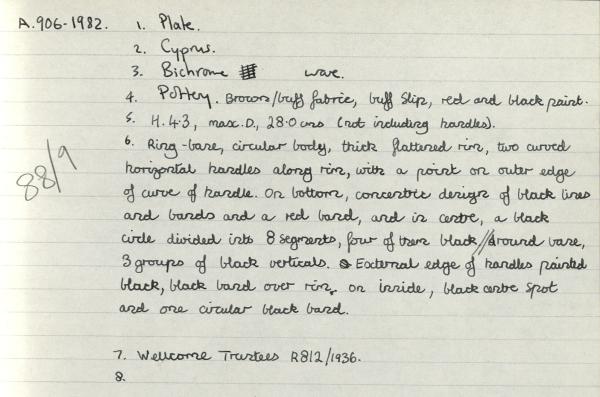 A.906-1982. 1. Plate.
2. Cyprus.
3. Bichrome ware.
4. Pottery. Brown/buff fabric, buff slip, red and black paint.
5. H. 4.3, max. D., 28.0 cms (not including handles).
88/9
6. Ring-base, circular body, thick flattened rim, two curved
horizontal handles along rim, with a point on outer edge
of curve of handle. On bottom, concentric design of black lines
and bands and a red band, and in centre, a black
circle divided into 8 segments, four of them black//around base,
3 groups of black verticals. External edge of handles painted
black, black band over rim, on inside, black centre spot
and one circular black band.
7. Wellcome Trustees R812/1936.
8.